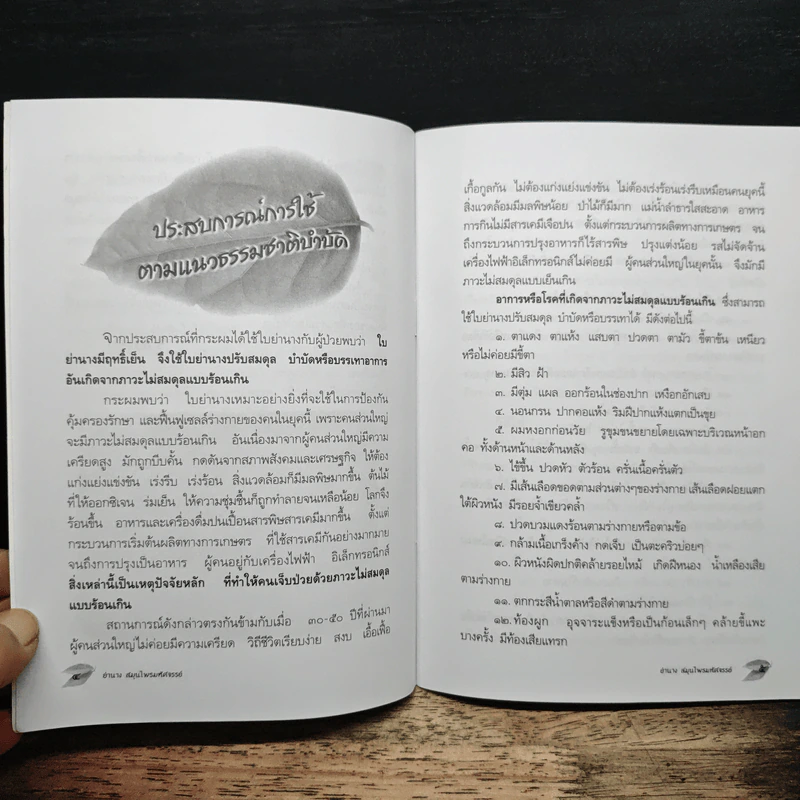 ประสบการณ์การใช้
ตามแนวธรรมชาติบำบัด
จากประสบการณ์ที่กระผมได้ใช้ใบย่านางกับผู้ป่วยพบว่า ใบ
ย่านางมีฤทธิ์เย็น จึงใช้ใบย่านางปรับสมดุล บำบัดหรือบรรเทาอาการ
อันเกิดจากภาวะไม่สมดุลแบบร้อนเกิน
กระผมพบว่า ใบย่านางเหมาะอย่างยิ่งที่จะใช้ในการป้องกัน
คุ้มครองรักษา และฟื้นฟูเซลล์ร่างกายของคนในยุคนี้ เพราะคนส่วนใหญ่
จะมีภาวะไม่สมดุลแบบร้อนเกิน อันเนื่องมาจากผู้คนส่วนใหญ่มีความ
เครียดสูง มักถูกบีบคั้น กดดันจากสภาพสังคมและเศรษฐกิจ ให้ต้อง
แก่งแย่งแข่งขัน เร่งรีบ เร่งร้อน สิ่งแวดล้อมก็มีมลพิษมากขึ้น ต้นไม้
ที่ให้ออกซิเจน ร่มเย็น ให้ความชุ่มชื้นก็ถูกทำลายจนเหลือน้อย โลกจึง
ร้อนขึ้น อาหารและเครื่องดื่มปนเปื้อนสารพิษสารเคมีมากขึ้น ตั้งแต่
กระบวนการเริ่มต้นผลิตทางการเกษตร ที่ใช้สารเคมีกันอย่างมากมาย
จนถึงการปรุงเป็นอาหาร ผู้คนอยู่กับเครื่องไฟฟ้า อิเล็กทรอนิกส์
สิ่งเหล่านี้เป็นเหตุปัจจัยหลัก ที่ทำให้คนเจ็บป่วยด้วยภาวะไม่สมดุล
แบบร้อนเกิน
สถานการณ์ดังกล่าวตรงกันข้ามกับเมื่อ ๓๐-๕๐ ปีที่ผ่านมา
ผู้คนส่วนใหญ่ไม่ค่อยมีความเครียด วิถีชีวิตเรียบง่าย สงบ เอื้อเฟื้อ
ย่านาง สมุนไพรมหัศจรรย์
เกื้อกูลกัน ไม่ต้องแก่งแย่งแข่งขัน ไม่ต้องเร่งร้อนเร่งรีบเหมือนคนยุคนี้
สิ่งแวดล้อมมีมลพิษน้อย ป่าไม้ก็มีมาก แม่น้ำลำธารใสสะอาด อาหาร
การกินไม่มีสารเคมีเจือปน ตั้งแต่กระบวนการผลิตทางการเกษตร จน
ถึงกระบวนการปรุงอาหารก็ไร้สารพิษ ปรุงแต่งน้อย รสไม่จัดจ้าน
เครื่องไฟฟ้าอิเล็กทรอนิกส์ไม่ค่อยมี ผู้คนส่วนใหญ่ในยุคนั้น จึงมักมี
ภาวะไม่สมดุลแบบเย็นเกิน
อาการหรือโรคที่เกิดจากภาวะไม่สมดุลแบบร้อนเกิน ซึ่งสามารถ
ใช้ใบย่านางปรับสมดุล บำบัดหรือบรรเทาได้ มีดังต่อไปนี้
๑. ตาแดง ตาแห้ง แสบตา ปวดตา ตามัว ขี้ตาข้น เหนียว
หรือไม่ค่อยมีขี้ตา
๒. มีสิว ฝ้า
๓. มีตุ่ม แผล ออกร้อนในช่องปาก เหงือกอักเสบ
๔. นอนกรน ปากคอแห้ง ริมฝีปากแห้งแตกเป็นขุย
๕. ผมหงอกก่อนวัย รูขุมขนขยายโดยเฉพาะบริเวณหน้าอก
คอ ทั้งด้านหน้าและด้านหลัง
๖. ไข้ขึ้น ปวดหัว ตัวร้อน ครั่นเนื้อครั่นตัว
๗. มีเส้นเลือดขอดตามส่วนต่างๆของร่างกาย เส้นเลือดฝอยแตก
ใต้ผิวหนัง มีรอยจ้ำเขียวคล้ำ
๘. ปวดบวมแดงร้อนตามร่างกายหรือตามข้อ
๙. กล้ามเนื้อเกร็งค้าง กดเจ็บ เป็นตะคริวบ่อยๆ
๑๐. ผิวหนังผิดปกติคล้ายรอยไหม้ เกิดฝีหนอง น้ำเหลืองเสีย
ตามร่างกาย
๑๑. ตกกระสีน้ำตาลหรือสีดำตามร่างกาย
๑๒. ท้องผูก อุจจาระแข็งหรือเป็นก้อนเล็กๆ คล้ายขี้แพะ
บางครั้ง มีท้องเสียแทรก
ย่านาง สมุนไพรมหัศจรรย์